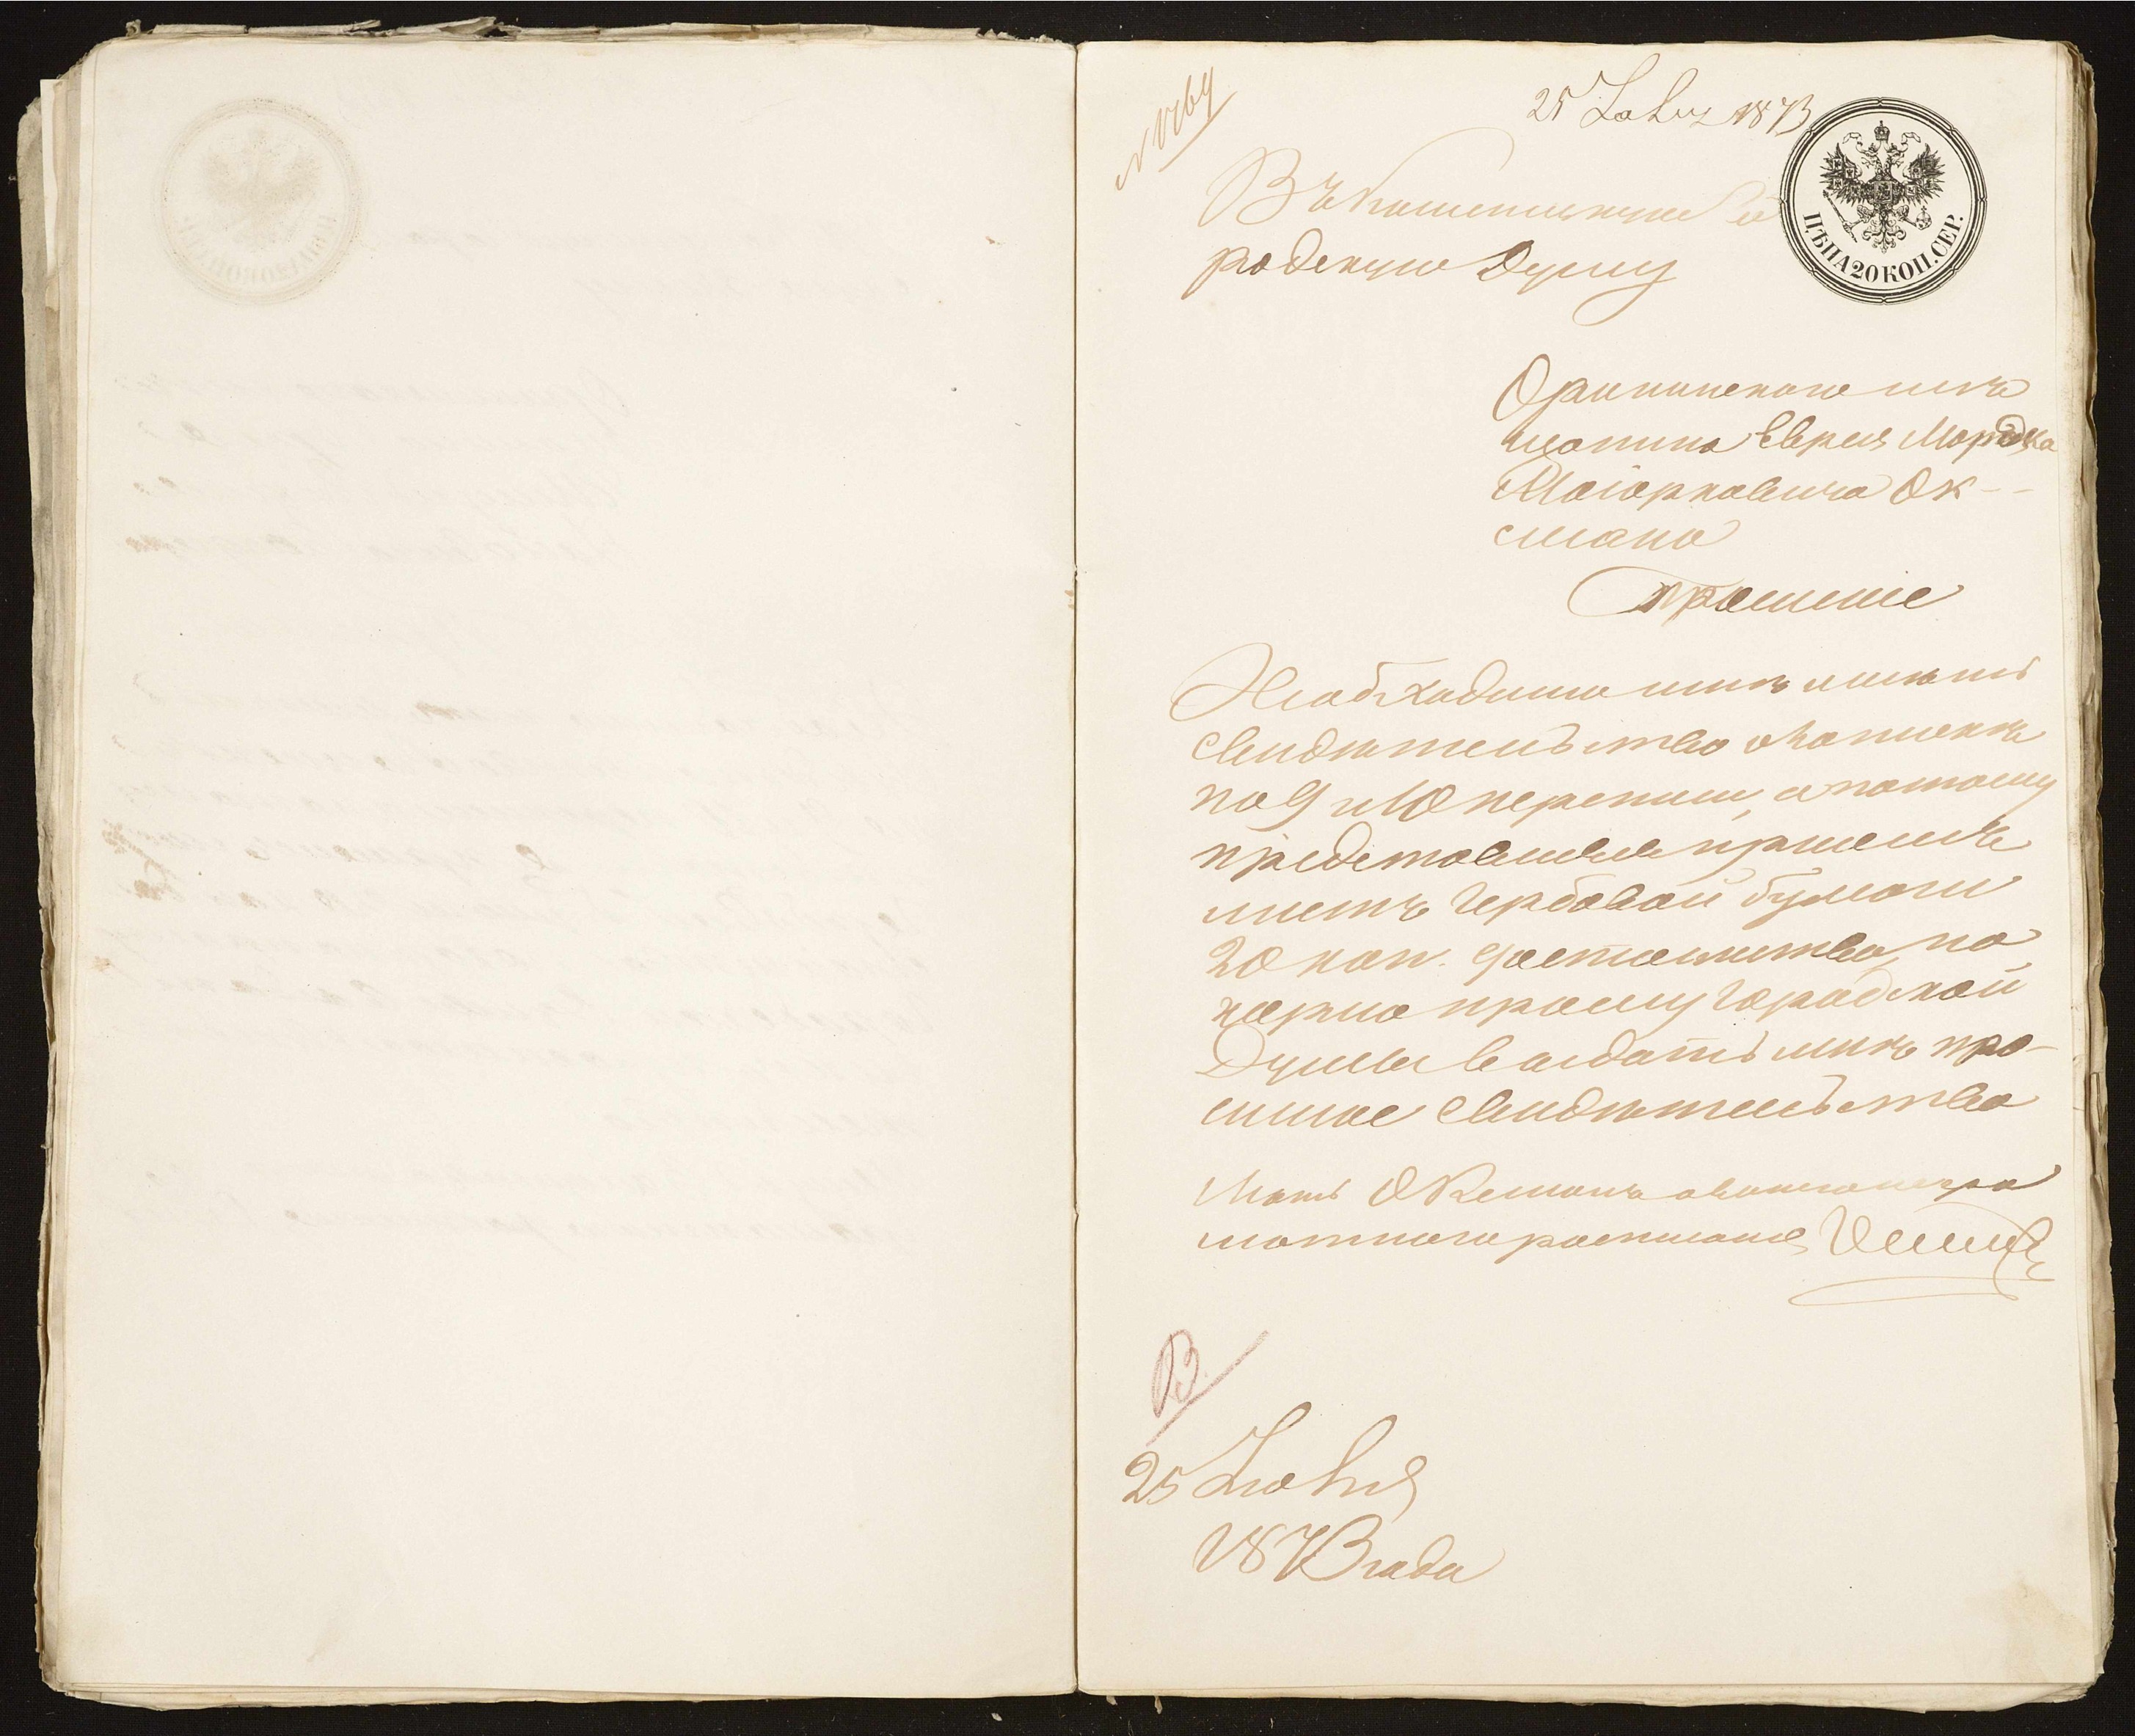 N 1764
25 1873
ЦѢНА 20 КОП. СЕР.
Въ Каменецкую Го
родскую Думу
Орининского мѣ
щанина Еврея Мордка
Ок-
смана
Прошеніе
Необходимо мнѣ имѣть
свидѣтельство о
по 9 и 10 переписи, а потому
представляя при семъ
листъ гербовой бумаги
20 коп. достоинства, по
корно прошу Городской
Думы выдать мнѣ про-
симое свидѣтельство
Оксманъ а вмѣсто негра
мотнаго росписался
В.
25
1873 года